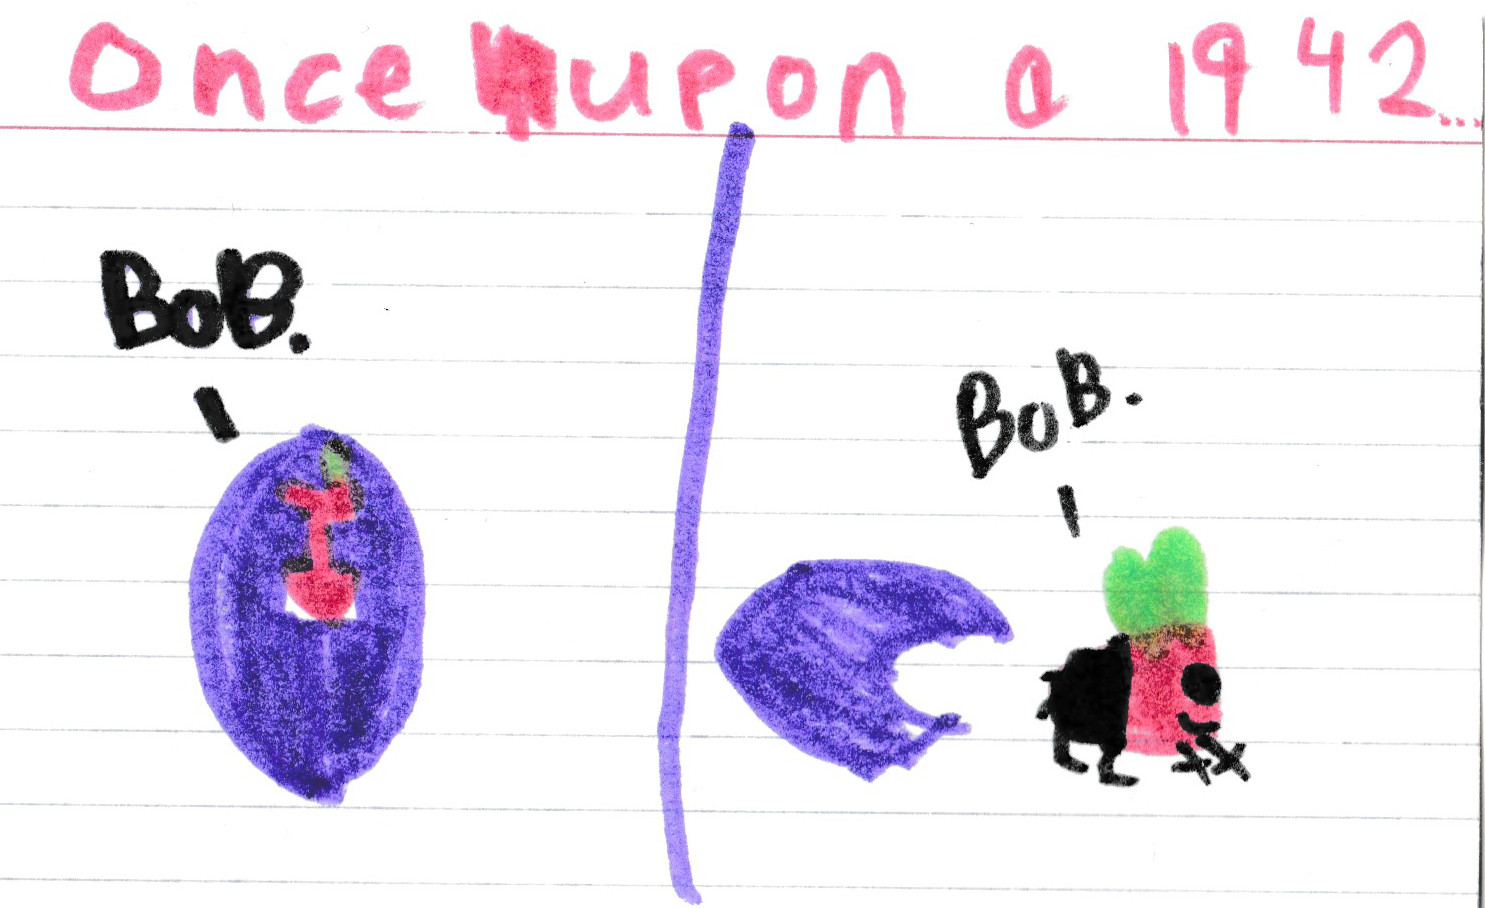 Once upon a 1942...
BoB.
BoB.